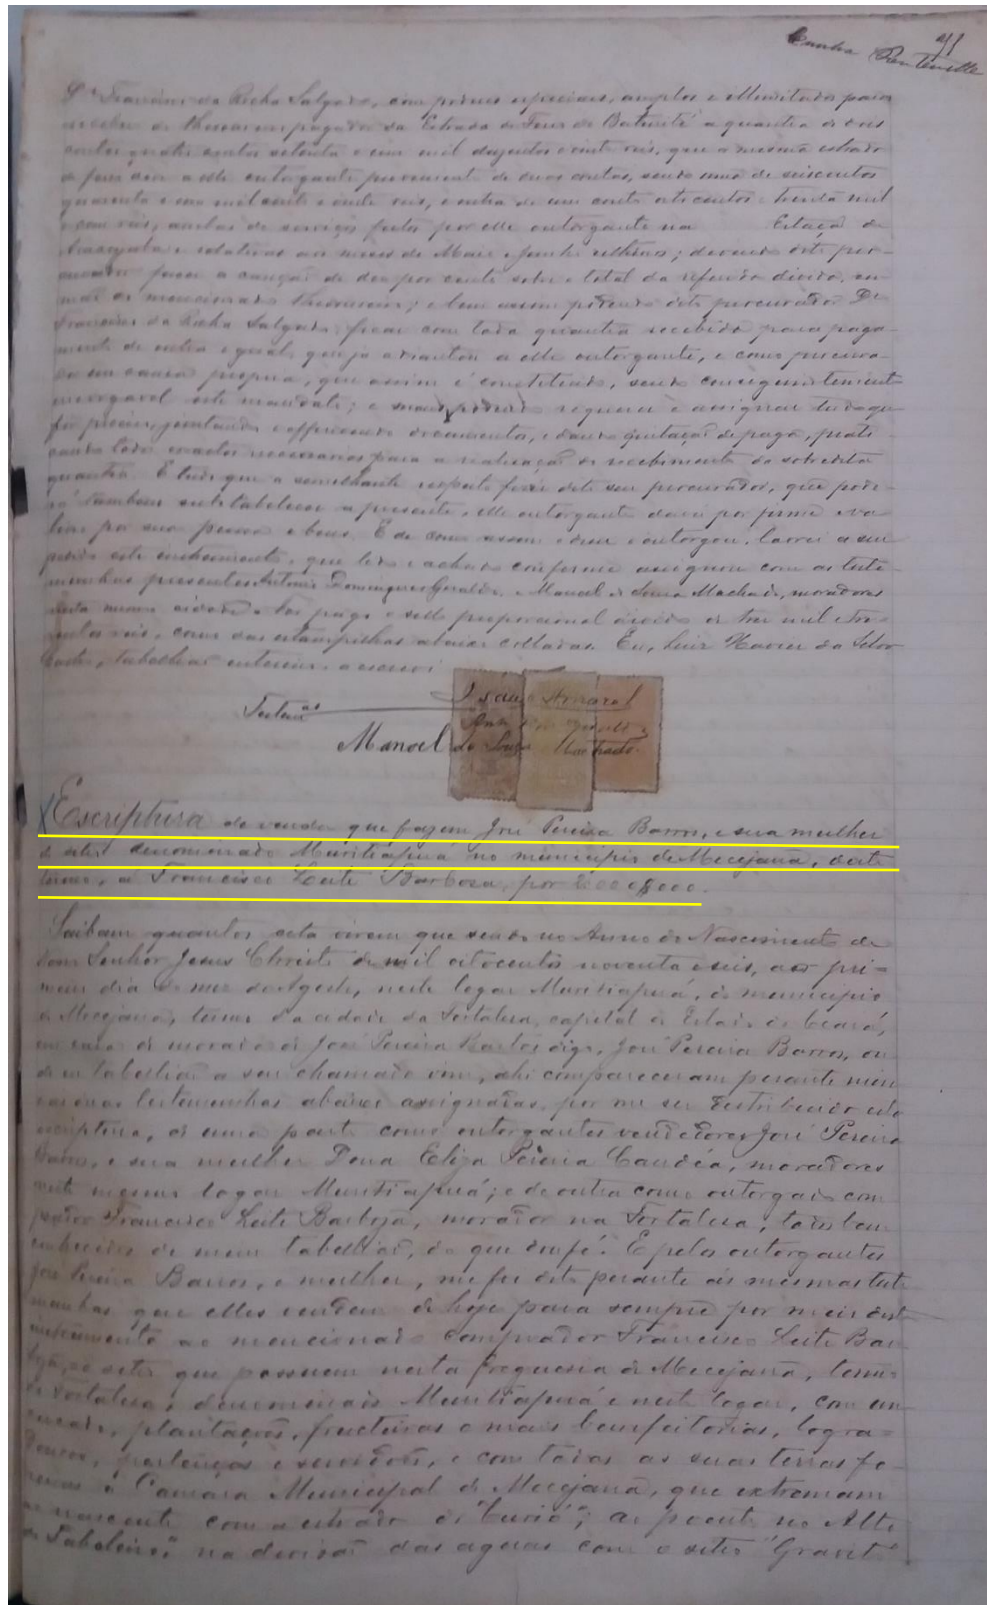 Cunha 91
Pontenelle
Dr Francisco da Rocha Salgado, com poderes especiaes, amplos e illimitados para
receber do Thesoureiro pagador da Estrada de Ferro de Baturité a quantia de dois
contos quatro centos setenta e um mil duzentos e vinte reis, que a mesma estrada
de ferro deve a elle outorgante proveniente de duas contas, sendo uma de seiscentos
quarenta e um mil cento e vinte reis, e outra de um conto oito centos e trinta mil
e cem reis, ambas de serviços feitos por elle outorgante na Estação de
e relativas aos mezes de Maio e Junho ultimos; devendo dito pro-
curador fazer a caução de dez por cento sobre o total da referida divida, em
mão do mencionado Thesoureiro; e bem assim podendo dito procurador Dr
Francisco da Rocha Salgado ficar com toda quantia recebida para paga-
mento de outra igual, que ja adiantou a elle outorgante, e como procura-
dor em causa propria, que assim é constituido, sendo conseguintemente
irrevogavel este mandato; e mais poderá requerer e assignar tudo que
for preciso, juntando e offerecendo documentos, e dando quitação de pago, prati-
cando todos os actos necessarios para a realisação do recebimento da sobredita
quantia. E tudo que a semelhante respeito fizer dito seu procurador, que pode-
rá tambem substabelecer a presente, elle outorgante dará por firme e va-
lioso por sua pessoa e bens. E de como assim o disse e outorgou, lavrei a seu
pedido este instrumento, que lido e achado conforme assignou com as teste-
munhas presentes Antonio Domingues Geraldo, e Manoel de Souza Machado, moradores
nesta mesma cidade. Foi pago o sello proporcional devido de tres mil e tre-
zentos reis, como das estampilhas abaixo colladas. Eu, Luiz Xavier da Silva
Castro, tabellião interino a escrevi
Amaral
Testas
Manoel de Souza Machado
Escriptura de venda que fazem José Pereira Barros, e sua mulher
do sitio denominado Muritiapuá no municipio de Mecejana, deste
termo, a Francisco Leite Barbosa, por 2:000$000.
Saibam quantos esta virem que sendo no Anno do Nascimento de
Nosso Senhor Jesus Christo de mil oitocentos noventa e seis, aos pri-
meiro dia do mez de Agosto, neste logar Muritiapuá, do municipio
de Mecejana, termo da cidade da Fortaleza, capital do Estado do Ceará,
em casa de morada de José Pereira Bastos digo, José Pereira Barros, on-
de eu tabellião a seu chamado vim, ahi compareceram perante mim
e as duas testemunhas abaixo assignadas, por me ser distribuida esta
escriptura, de uma parte como outorgantes vendedores José Pereira
Barros, e sua mulher Dona Eliza Pereira Candéa, moradores
neste mesmo logar Muritiapuá; e de outra como outorgado com-
prador Francisco Leite Barbosa, morador na Fortaleza, todos bem
conhecidos de mim tabellião, do que dou fé. E pelos outorgantes
José Pereira Barros, e mulher, me foi dito perante as mesmas teste-
munhas que elles vendem de hoje para sempre por meio deste
instrumento ao mencionado comprador Francisco Leite Bar-
bosa, o sitio que possuem nesta freguesia de Mecejana, termo
de Fortaleza, denominado Muritiapuá e neste logar, com
cercado, plantações, fructeiras e mais bemfeitorias, logra-
douros, pertenças e servidões, e com todas as suas terras fo-
reiras á Camara Municipal de Mecejana, que extremam
ao nascente com a estrada do "Curió"; ao poente no "Alto
do Taboleiro" na devisão das aguas com o sitio "Gravitó"